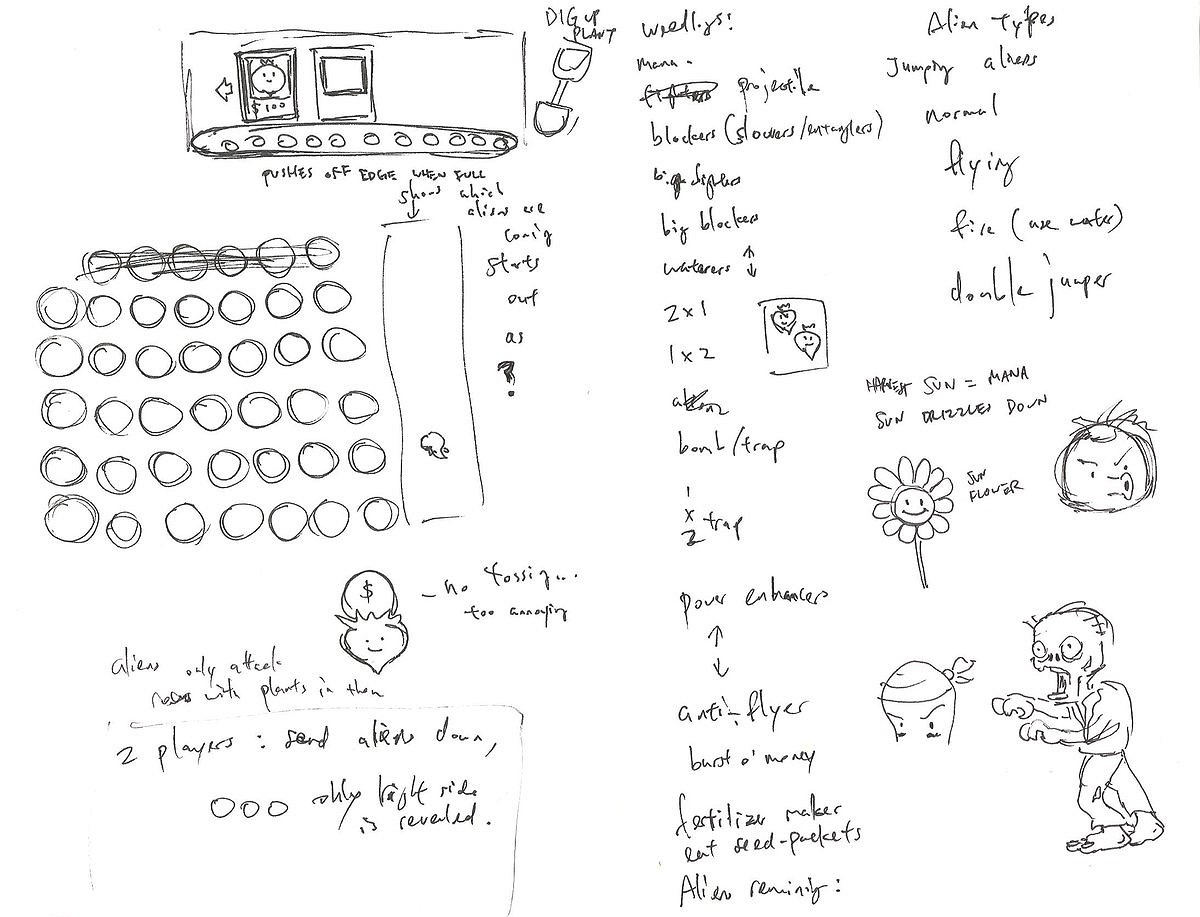 DIG UP
PLANT
$100
PUSHES OFF EDGE WHEN FULL
shows which
aliens are
coming
starts
out
as
?
$
- no tossing...
too annoying
aliens only attack
rows with plants in them
2 players : send aliens down,
only right side
is revealed.
weedlings!
mana.
projectile
blockers (slowers/entanglers)
big fighters
big blockers
waterers
2x1
1x2
bomb/trap
1
x trap
2
power enhancers
anti-flyer
burst o' money
fertilizer maker
eat seed-packets
Alien reminix:
Alien types
Jumping aliens
normal
flying
fire (use water)
double jumper
HARVEST SUN = MANA
SUN DRIZZLES DOWN
SUN
FLOWER